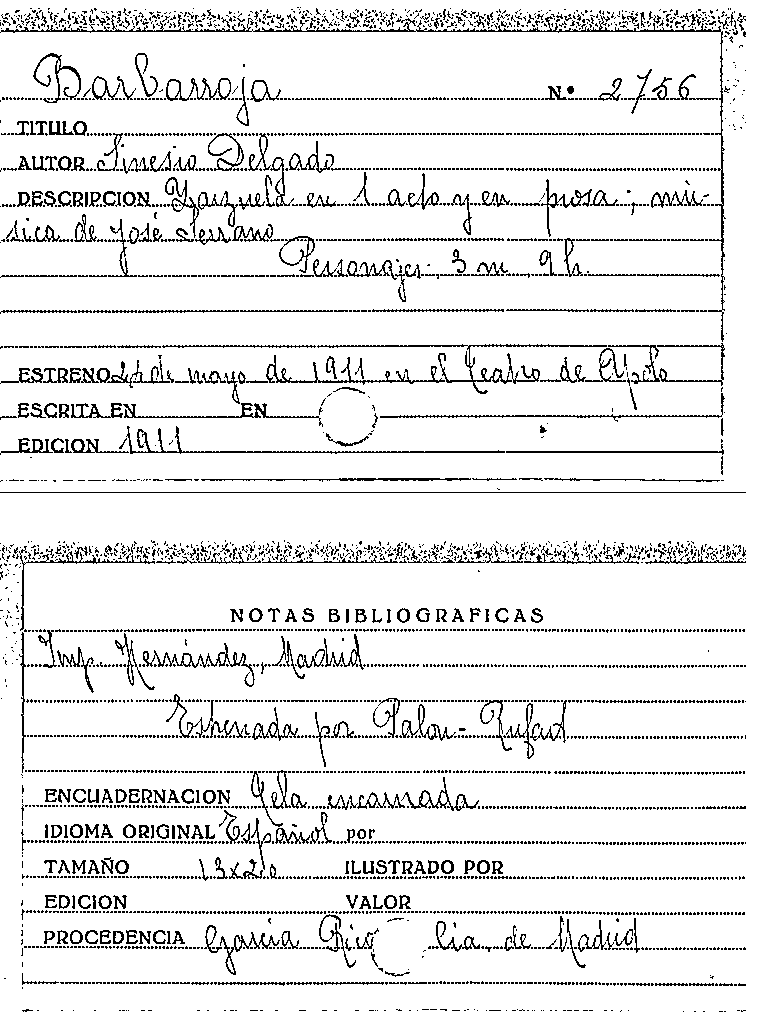 Barbarroja Nº 2756
TITULO
AUTOR Sinesio Delgado
DESCRIPCION Zarzuela en 1 acto y en prosa; mú-
sica de José Serrano
Personajes: 3 m, 9 h.
ESTRENO de mayo de 1911 en el Teatro de Apolo
ESCRITA EN EN
EDICION 1911
NOTAS BIBLIOGRAFICAS
Imp. Hernández, Madrid
Estrenada por Palou-
ENCUADERNACION Tela encarnada
IDIOMA ORIGINAL Español por
TAMAÑO 13x20 ILUSTRADO POR
EDICION VALOR
PROCEDENCIA García Rico Cia. de Madrid